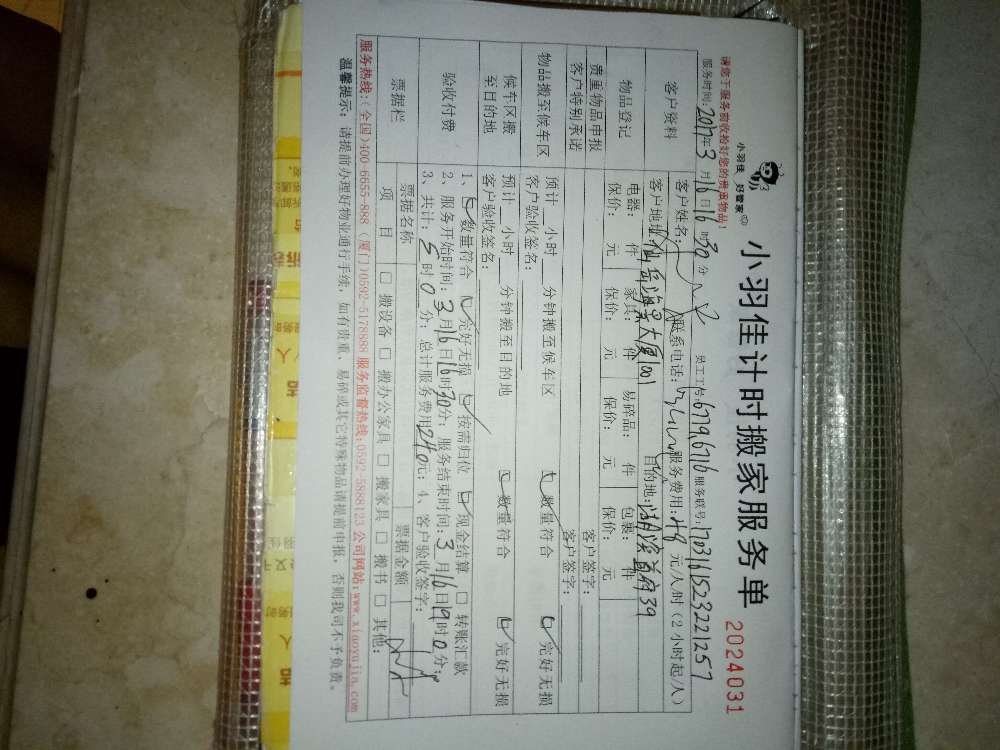 小羽佳 好管家
小羽佳计时搬家服务单 2024031
请您于服务前收检好您的贵重物品!
服务时间:2017年3月16日16时30分 员工工号:6779,6716 服务联号:1703161523221257
客户资料 客户姓名: 联系电话: 服务费用:48元/人/时(2小时起/人)
客户地址:仙岳海景大厦1001 目的地:
物品登记 电器: 件 家具: 件 易碎品: 件 包裹: 件
保价: 元 保价: 元 保价: 元 保价: 元
贵重物品申报 客户签字:
客户特别承诺 客户签字:
物品搬至候车区 预计 小时 分钟搬至候车区 数量符合 完好无损
客户验收签名:
候车区搬至目的地 预计 小时 分钟搬至目的地 数量符合 完好无损
客户验收签名:
验收付费 1、数量符合 完好无损 按需归位 现金结算 转账汇款
2、服务开始时间:3月16日16时30分;服务结束时间:3月16日19时0分;
3、共计:5时0分;总计服务费用240元;4、客户验收签字:
票据栏 票据名称 票据金额
项目 搬设备 搬办公家具 搬家具 搬书 其他:
服务热线:(全国)400-6655-888 (厦门)0592-5178888 服务监督热线:0592-5888123 公司网站:www.xiaoyujia.com
温馨提示:请提前办理好物业通行手续,如有贵重、易碎或其它特殊物品请提前申报,否则我司不予负责。